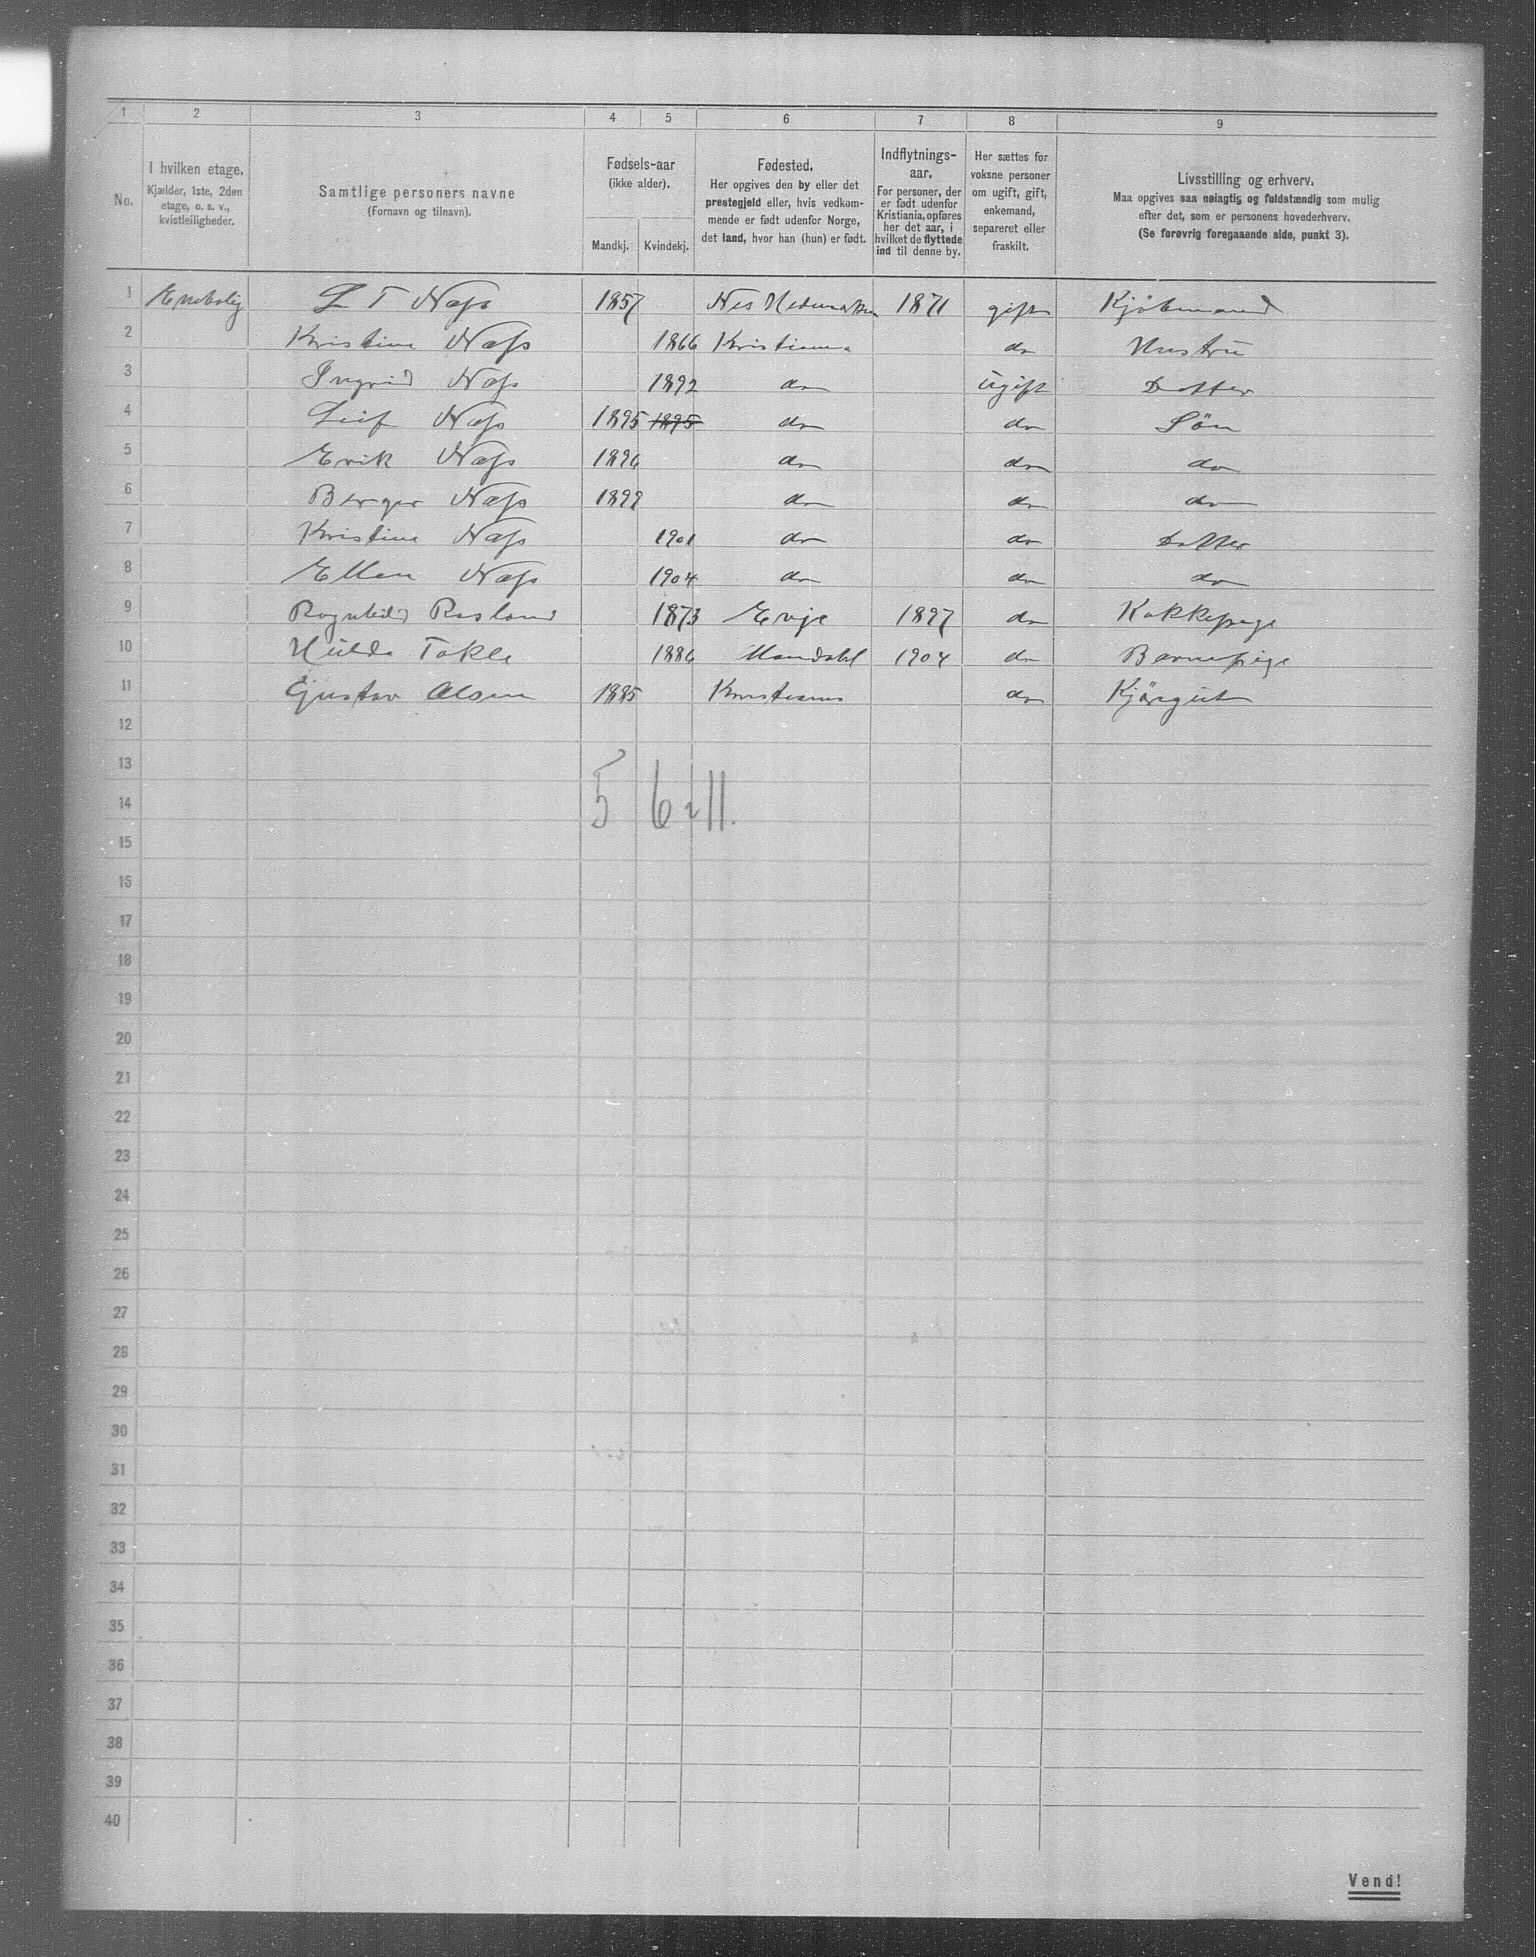 1 2 3 4 5 6 7 8 9
No.
I hvilken etage.
Kjælder, 1ste, 2den
etage, o. s. v.,
kvistleiligheder.
Samtlige personers navne
(Fornavn og tilnavn).
Fødsels-aar
(ikke alder).
Mandkj. Kvindekj.
Fødested.
Her opgives den by eller det
prestegjeld eller, hvis vedkom-
mende er født udenfor Norge,
det land, hvor han (hun) er født.
Indflytnings-
aar.
For personer, der
er født udenfor
Kristiania, opføres
her det aar, i
hvilket de flyttede
ind til denne by.
Her sættes for
voksne personer
om ugift, gift,
enkemand,
separeret eller
fraskilt.
Livsstilling og erhverv.
Maa opgives saa nøiagtig og fuldstændig som mulig
efter det, som er personens hovederhverv.
(Se forøvrig foregaaende side, punkt 3).
1 Enebolig L T Næss 1857 Nes Hedemarken 1871 gift Kjöbmand
2 Kristine Næss 1866 Kristiania do Hustru
3 Ingrid Næss 1892 do ugift Datter
4 Leif Næss 1895 1895 do do Sön
5 Erik Næss 1896 do do do
6 Birger Næss 1899 do do do
7 Kristine Næss 1901 do do Datter
8 Ellen Næss 1904 do do do
9 Ragnhild Rosland 1873 Evje 1897 do Kokkepige
10 Hulda Takle 1886 Mandahl 1904 do Barnepige
11 Gustav Olsen 1885 Kristiania do Kjöregut
12
13
14 5 6 11.
15
16
17
18
19
20
21
22
23
24
25
26
27
28
29
30
31
32
33
34
35
36
37
38
39
40
Vend!